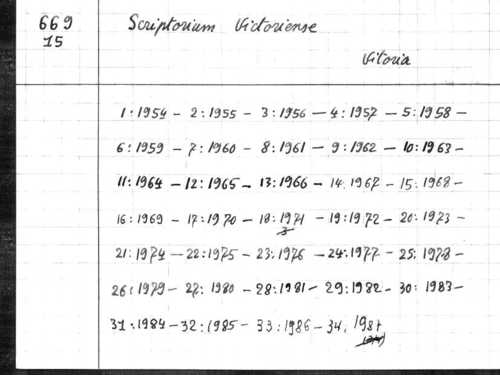 669 Scriptorium Victoriense
15
Vitoria
1:1954 - 2:1955 - 3:1956 - 4:1957 - 5:1958 -
6:1959 - 7:1960 - 8:1961 - 9:1962 - 10:1963 -
11:1964 - 12:1965 - 13:1966 - 14:1967 - 15:1968 -
16:1969 - 17:1970 - 18:1971 - 19:1972 - 20:1973 -
3
21:1974 - 22:1975 - 23:1976 - 24:1977 - 25:1978 -
26:1979 - 27:1980 - 28:1981 - 29:1982 - 30:1983 -
31:1984 - 32:1985 - 33:1986 - 34:1987